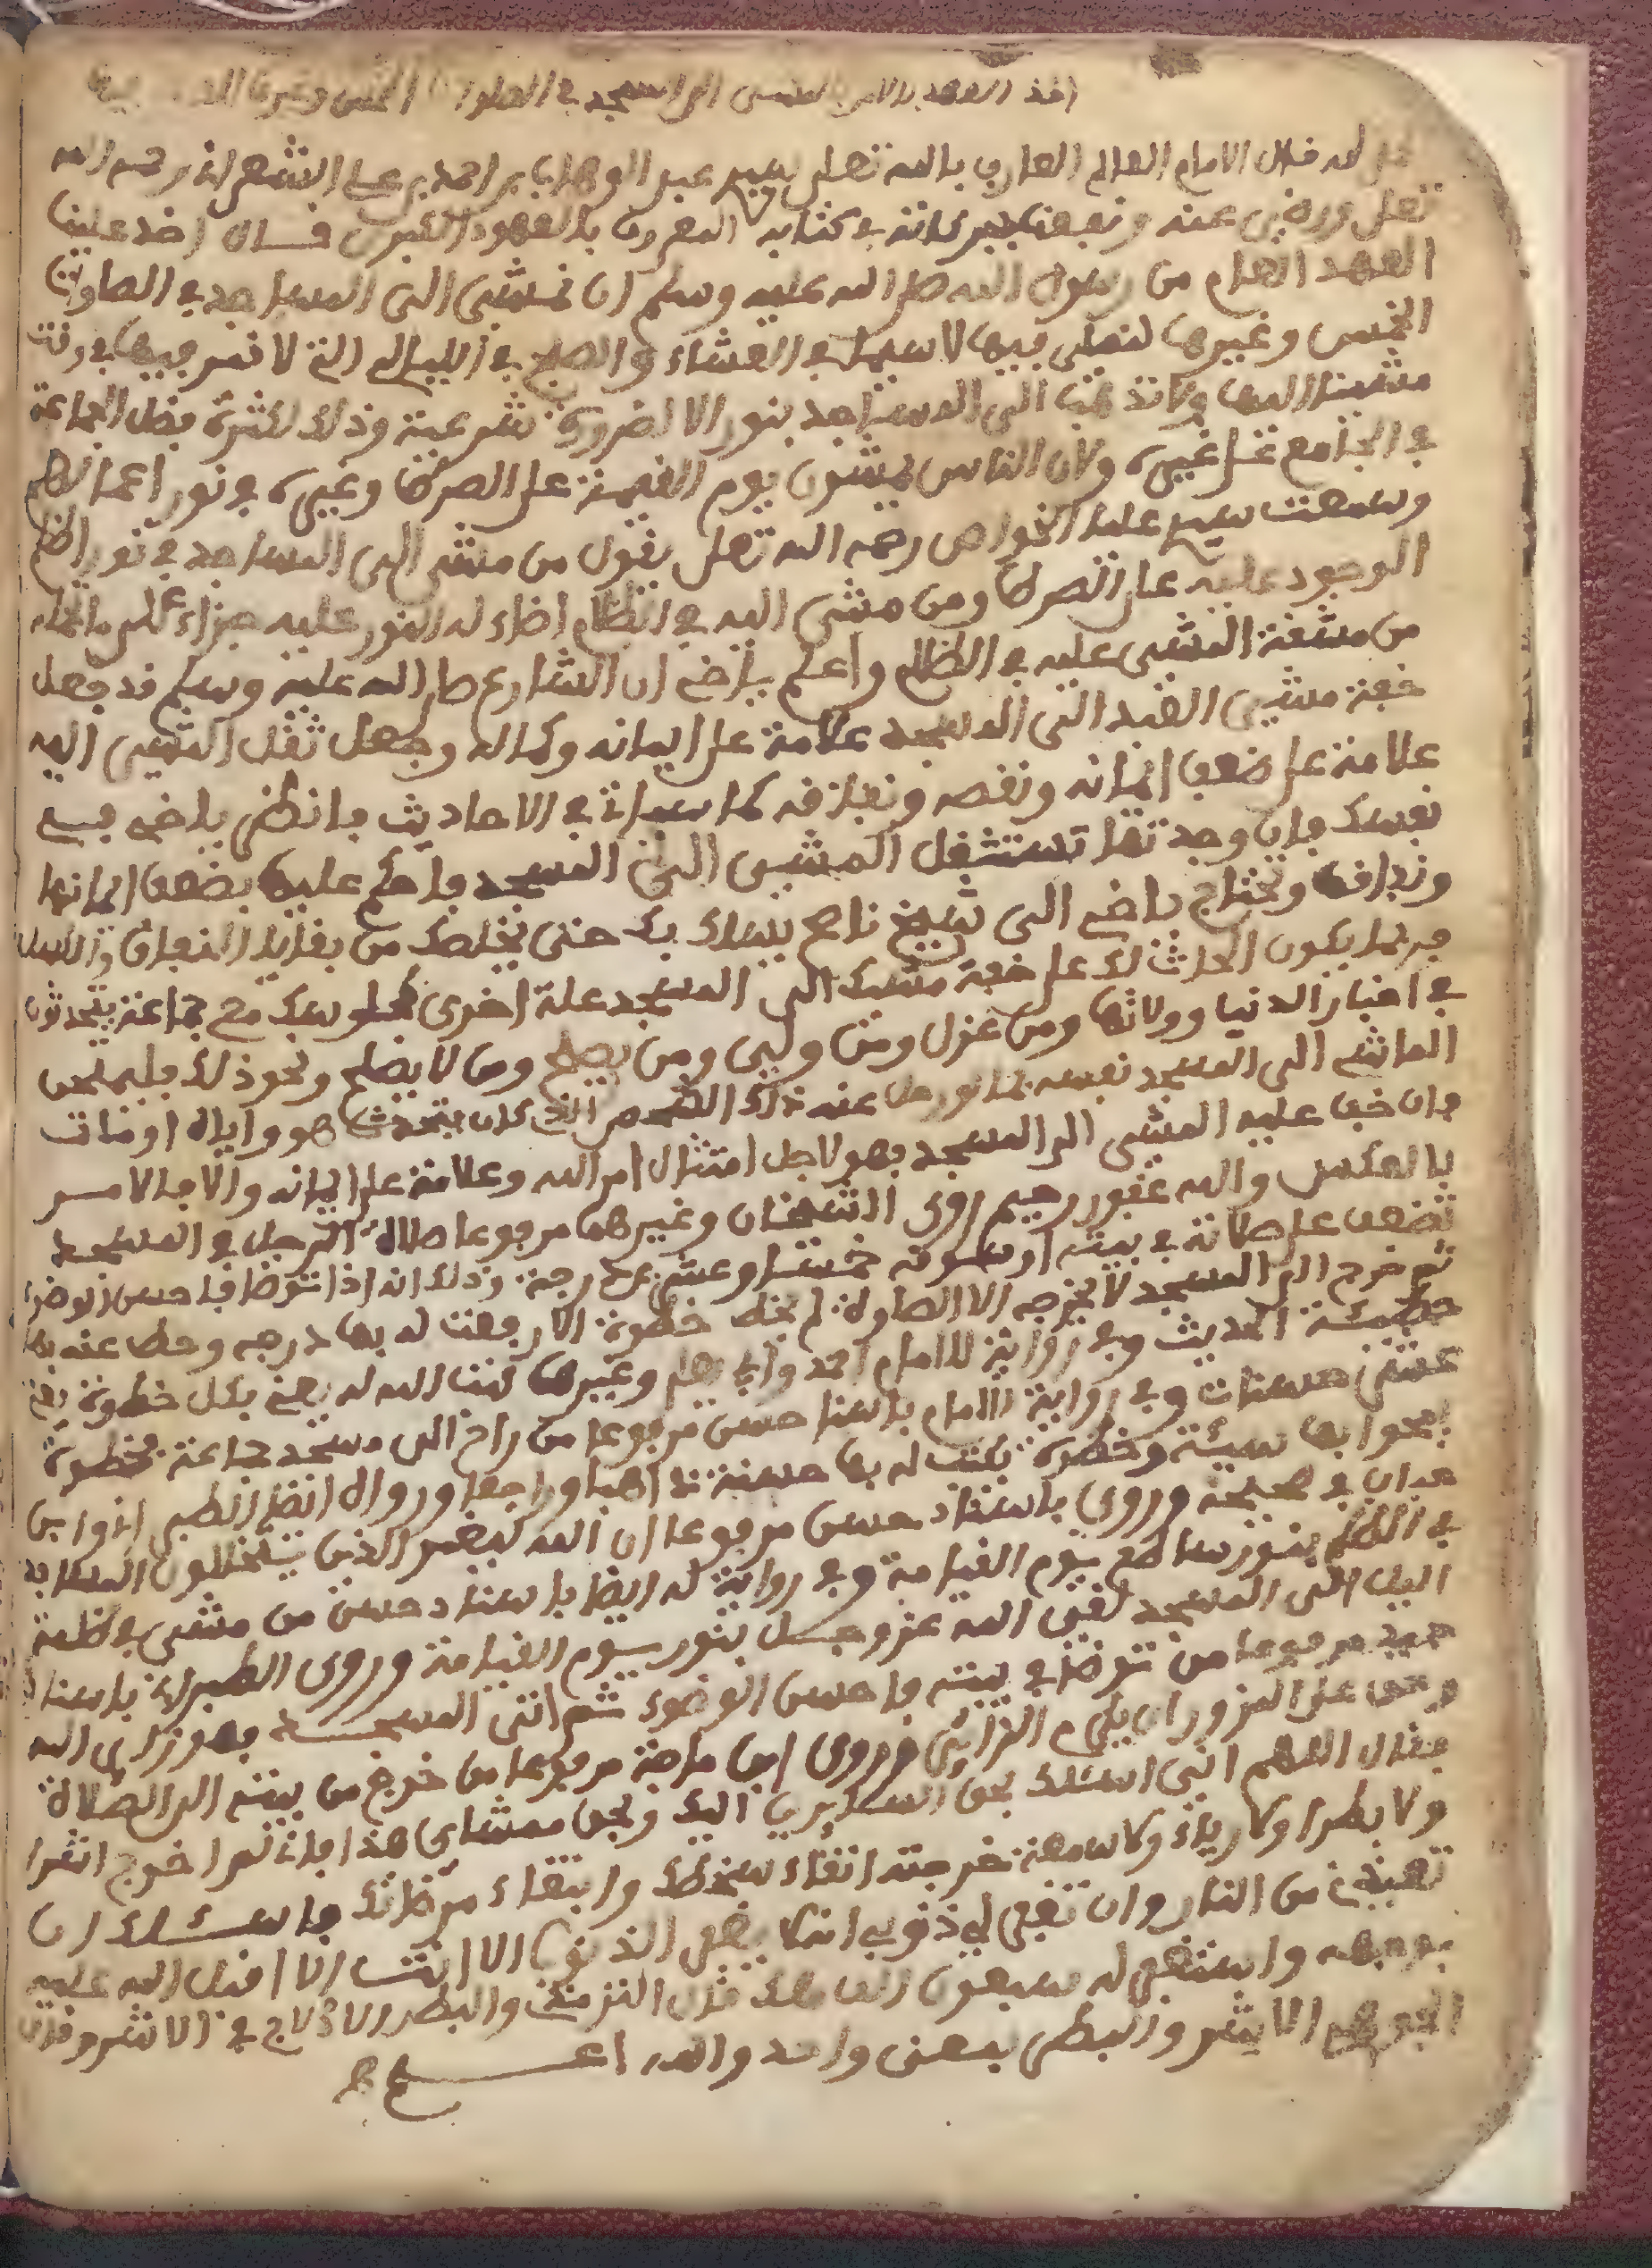 اخذ العهد بالامر بالمشي الى المسجد في الصلوات الخمس وغيرها
لله قال الامام العالم العارف بالله تعلى سيد عبد الوهاب بن احمد بن علي الشعراني رحمه الله
تعلى ورضي عنه ونفعنا ببركاته في كتابه المعروف بالعهود الكبرى قال اخذ علينا
العهد العام من رسول الله صلى الله عليه وسلم ان نمشي الى المساجد في الصلوات
الخمس وغيرها لنصلي فيها لا سيما في العشاء والصبح في الليالي التي لا قمر فيها في وقت
مشينا اليها ولا نذهب الى المساجد بنور الا لضرورة شرعية وذلك لكثرة فضل الجماعة
في الجامع على غيره ولان الناس يمشون يوم القيمة على الصراط وغيره في نور اعمالهم
وسمعت سيدي عليا الخواص رحمه الله تعلى يقول من مشى الى المساجد في نور اظلم
الوجود عليه على الصراط ومن مشى اليه في الظلام اضاء له النور عليه جزاء على ما تحمله
من مشقة المشي عليه في الظلام واعلم ياخي ان الشارع صلى الله عليه وسلم قد جعل
خفة مشي العبد الى المسجد علامة على ايمانه وكماله وجعل ثقل المشي اليه
علامة على ضعف ايمانه ونقصه ونفاقه كما سياتي في الاحاديث فانظر ياخي في
نفسك فان وجدتها تستثقل المشي الى المسجد فاحكم عليها بضعف ايمانها
ونفاقها وتحتاج ياخي الى شيخ ناصح يسلك بك حتى يخلصك من بقايا النفاق والا
فربما يكون الحادث لك على خفة مشيك الى المسجد علة اخرى كجلوسك مع جماعة يتحدثون
في اخبار الدنيا وولاتها ومن عزل ومن ولي ومن يصلح ومن لا يصلح ونحو ذلك فليمتحن
الماشي الى المسجد نفسه بما لو رحل عنه ذلك الشخص الذي كان يتحدث هو واياه او مات
فان خف عليه المشي الى المسجد فهو لاجل امتثال امر الله وعلامة على ايمانه والا فالامر
بالعكس والله غفور رحيم روى الشيخان وغيرهما مرفوعا صلاة الرجل في المسجد
تضعف على صلاته في بيته او سوقه خمسا وعشرين درجة وذلك انه اذا توضا فاحسن الوضوء
ثم خرج الى المسجد لا يخرجه الا الصلوة لم يخط خطوة الا رفعت له بها درجة وحط عنه بها
خطيئة الحديث وفي رواية للامام احمد وابي يعلى وغيرها كتب الله له بكل خطوة
عشر حسنات وفي رواية للامام باسناد حسن مرفوعا من راح الى مسجد جماعة فخطوة
يمحوا بها سيئة وخطوة يكتب له بها حسنة ذاهبا وراجعا ورواه ايضا الطبراني وابن
حبان في صحيحه وروى باسناد حسن مرفوعا ان الله ليضئ الذين يتخللون المساجد
في الظلم بنور ساطع يوم القيامة وفي رواية له ايضا باسناد حسن من مشى في ظلمة
اليل الى المسجد لقي الله عز وجل بنور يوم القيامة وروى الطبراني باسناد
جيد مرفوعا من توضا في بيته فاحسن الوضوء ثم اتى المسجد فهو زاير الله
وحق على المزور ان يكرم الزائر وروى ابن ماجة مرفوعا من خرج من بيته الى الصلاة
فقال اللهم اني اسئلك بحق السائلين اليك وبحق ممشاي هذا فاني لم اخرج اشرا
ولا بطرا ولا رياء ولا سمعة خرجت اتقاء سخطك وابتغاء مرضاتك فاسئلك ان
تعيذني من النار وان تغفر لي ذنوبي انه لا يغفر الذنوب الا انت الا اقبل الله عليه
بوجهه واستغفر له سبعون الف ملك قال الترمذي والبطر والا في الاشر وقال
الجوهري الاشر والبطر بمعنى واحد والله اعلم